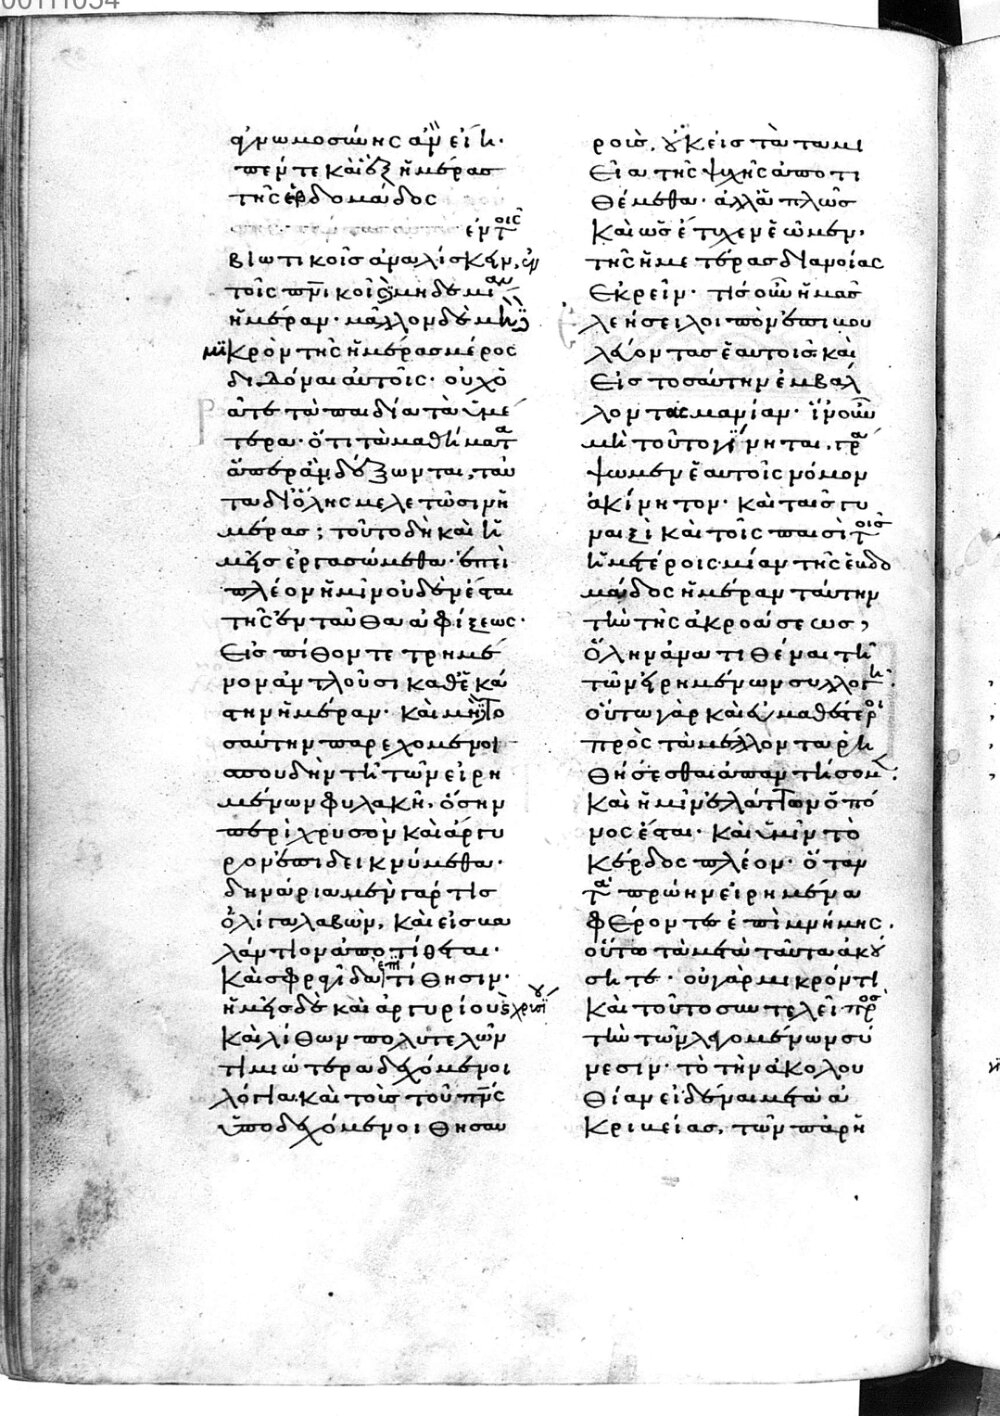 00111034
γνωμοσύνης ἂν εἴη·
πέντε καὶ ἓξ ἡμέρας
τῆς ἑβδομάδος
ἐν τοῖς
βιωτικοῖς ἀναλίσκειν, ἐν
τοῖς πνικοῖς μηδὲ μίαν
ἡμέραν· μᾶλλον δὲ μὴ
μικρὸν τῆς ἡμέρας μέρος
διδόναι αὐτοῖς· οὐχ ὁ
ρᾶτε τὰ παιδία τὰ ὑμέ
τερα· ὅτι τὰ μαθήματα
ἅπερ ἂν δέξωνται, ταῦ
τα διόλης μελετῶσιν ἡ
μέρας; τοῦτο δὴ καὶ ἡ
μεῖς ἐργασώμεθα· ἐπεὶ
πλέον ἡμῖν οὐδὲν ἔσται
τῆς ἐνταῦθα ἀφίξεως·
εἰς πίθον τετρημέ
νον ἀντλοῦσι καθ ἑκά
στην ἡμέραν· καὶ μὴ το
σαύτην παρεχομένοι
σπουδὴν τῇ τῶν εἰρη
μένων φυλακῇ, ὅσην
περὶ χρυσὸν καὶ ἀργύ
ρον ἐπιδεικνύμεθα·
δηνάρια μὲν γάρ τις
ὀλίγα λαβὼν, καὶ εἰς βα
λάντιον ἀποτίθεται·
καὶ σφραγῖδα ἐπιτίθησιν·
ἡμεῖς δὲ καὶ ἀργυρίου χρυσίου
καὶ λίθων πολυτελῶν
τιμιώτερα δεχόμενοι
λόγια· καὶ τοὺς τοῦ πνς
ὑποδεχόμενοι θησαυ
ροὺς, οὐκ εἰς τὰ ταμι
εῖα τῆς ψυχῆς ἀποτι
θέμεθα· ἀλλ ἁπλῶς
καὶ ὡς ἔτυχεν ἐῶμεν,
τῆς ἡμετέρας διανοίας
ἐκρεῖν· τίς οὖν ἡμᾶς
ἐλεήσει λοιπὸν ἐπιβου
λεύοντας ἑαυτοῖς καὶ
εἰς τοσαύτην ἐμβαλ
λοντας μανίαν· ἵν οὖν
μὴ τοῦτο γίνηται, γρά
ψωμεν ἑαυτοῖς νόμον
ἀκίνητον· καὶ ταῖς γυ
ναιξὶ καὶ τοῖς παισὶ τοῖς
ἡμετέροις μίαν τῆς ἑβδο
μάδος ἡμέραν ταύτην
τὴν τῆς ἀκροάσεως,
ὅλην ἀνατιθέναι τῇ
τῶν εἰρημένων συλλογῇ.
οὕτω γὰρ καὶ εὐμαθέστεροι
πρὸς τὰ μέλλοντα ῥη
θήσεσθαι ἀπαντήσομεν.
καὶ ἡμῖν ἐλάττων ὁ πό
νος ἔσται· καὶ ὑμῖν τὸ
κέρδος πλέον· ὅταν
τὰ πρώην εἰρημένα
φέροντες ἐπὶ μνήμης.
οὕτω τὰ μετὰ ταῦτα ἀκού
σητε· οὐ γὰρ μικρόν τι
καὶ τοῦτο συντελεῖ πρὸς
τὴν τῶν λεγομένων σύ
νεσιν· τὸ τὴν ἀκολου
θίαν εἰδέναι μετὰ ἀ
κριβείας, τῶν παρ ἡ